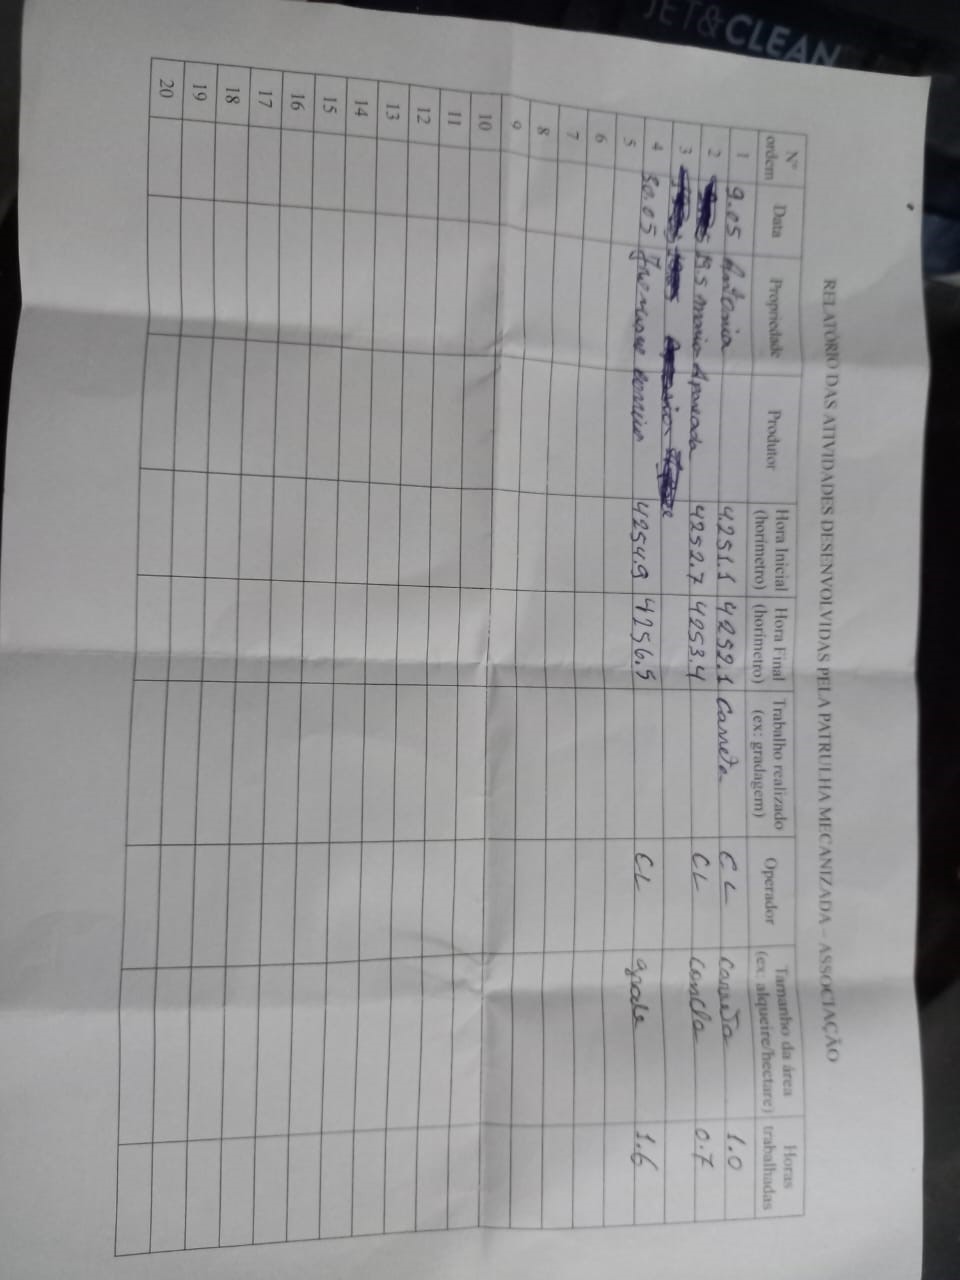 JET&CLEAN
RELATÓRIO DAS ATIVIDADES DESENVOLVIDAS PELA PATRULHA MECANIZADA – ASSOCIAÇÃO
Nº ordem Data Propriedade Produtor Hora Inicial (horímetro) Hora Final (horímetro) Trabalho realizado (ex: gradagem) Operador Tamanho da área (ex: alqueire/hectare) Horas trabalhadas
1 9.05 Antonia 4251.1 4252.1 Carreta CL carreta 1.0
2 19.5 maria Aparecida 4252.7 4253.4 CL concha 0.7
3
4 30.05 4254.9 4256.5 CL grade 1.6
5
6
7
8
9
10
11
12
13
14
15
16
17
18
19
20